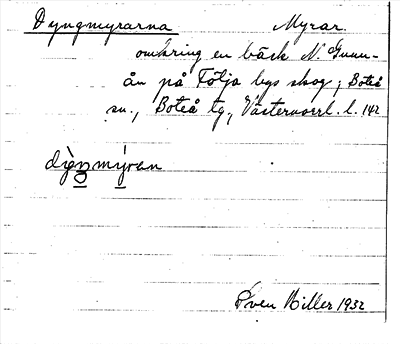 Dyngmyrarna Myrar.
omkring en bäck N. Gnun-
ån på Följa bys skog; Boteå
sn., Boteå tg., Västernorrl. l. 142
myran
Sven Hiller 1932